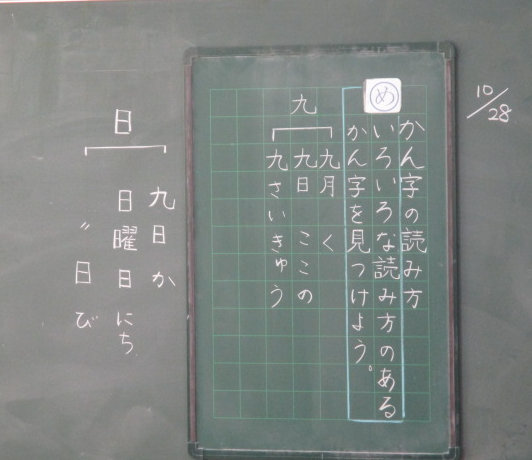 10/28
かん字の読み方
め
いろいろな読み方のある
かん字を見つけよう。
九
九月 く
九日 ここの
九さい きゅう
日
九日 か
日曜日 にち
〃 日 び